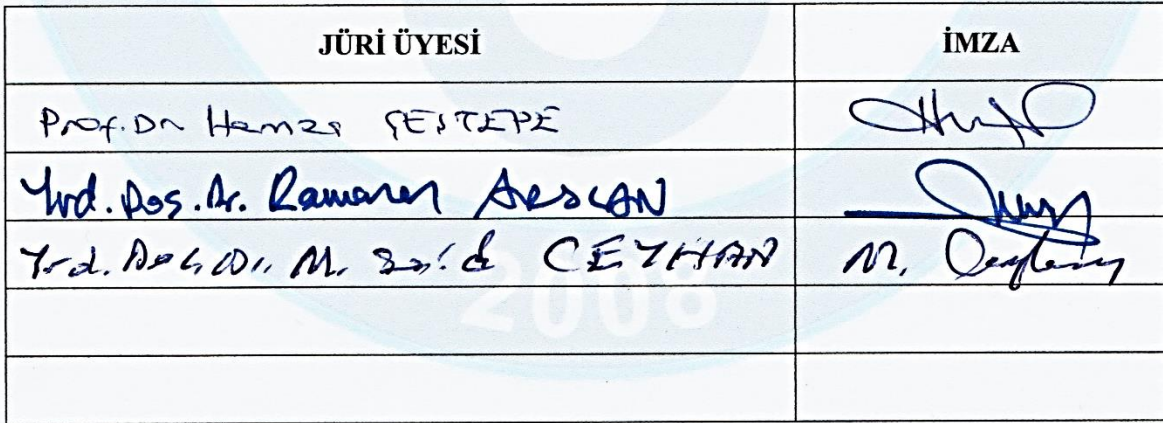 JÜRİ ÜYESİ İMZA
Prof. Dr Hamza ÇEŞTEPE
Yrd. Doç. Dr. Ramazan ARSLAN
Yrd. Doç. Dr. M. Said CEYHAN M. Ceyhan
2008